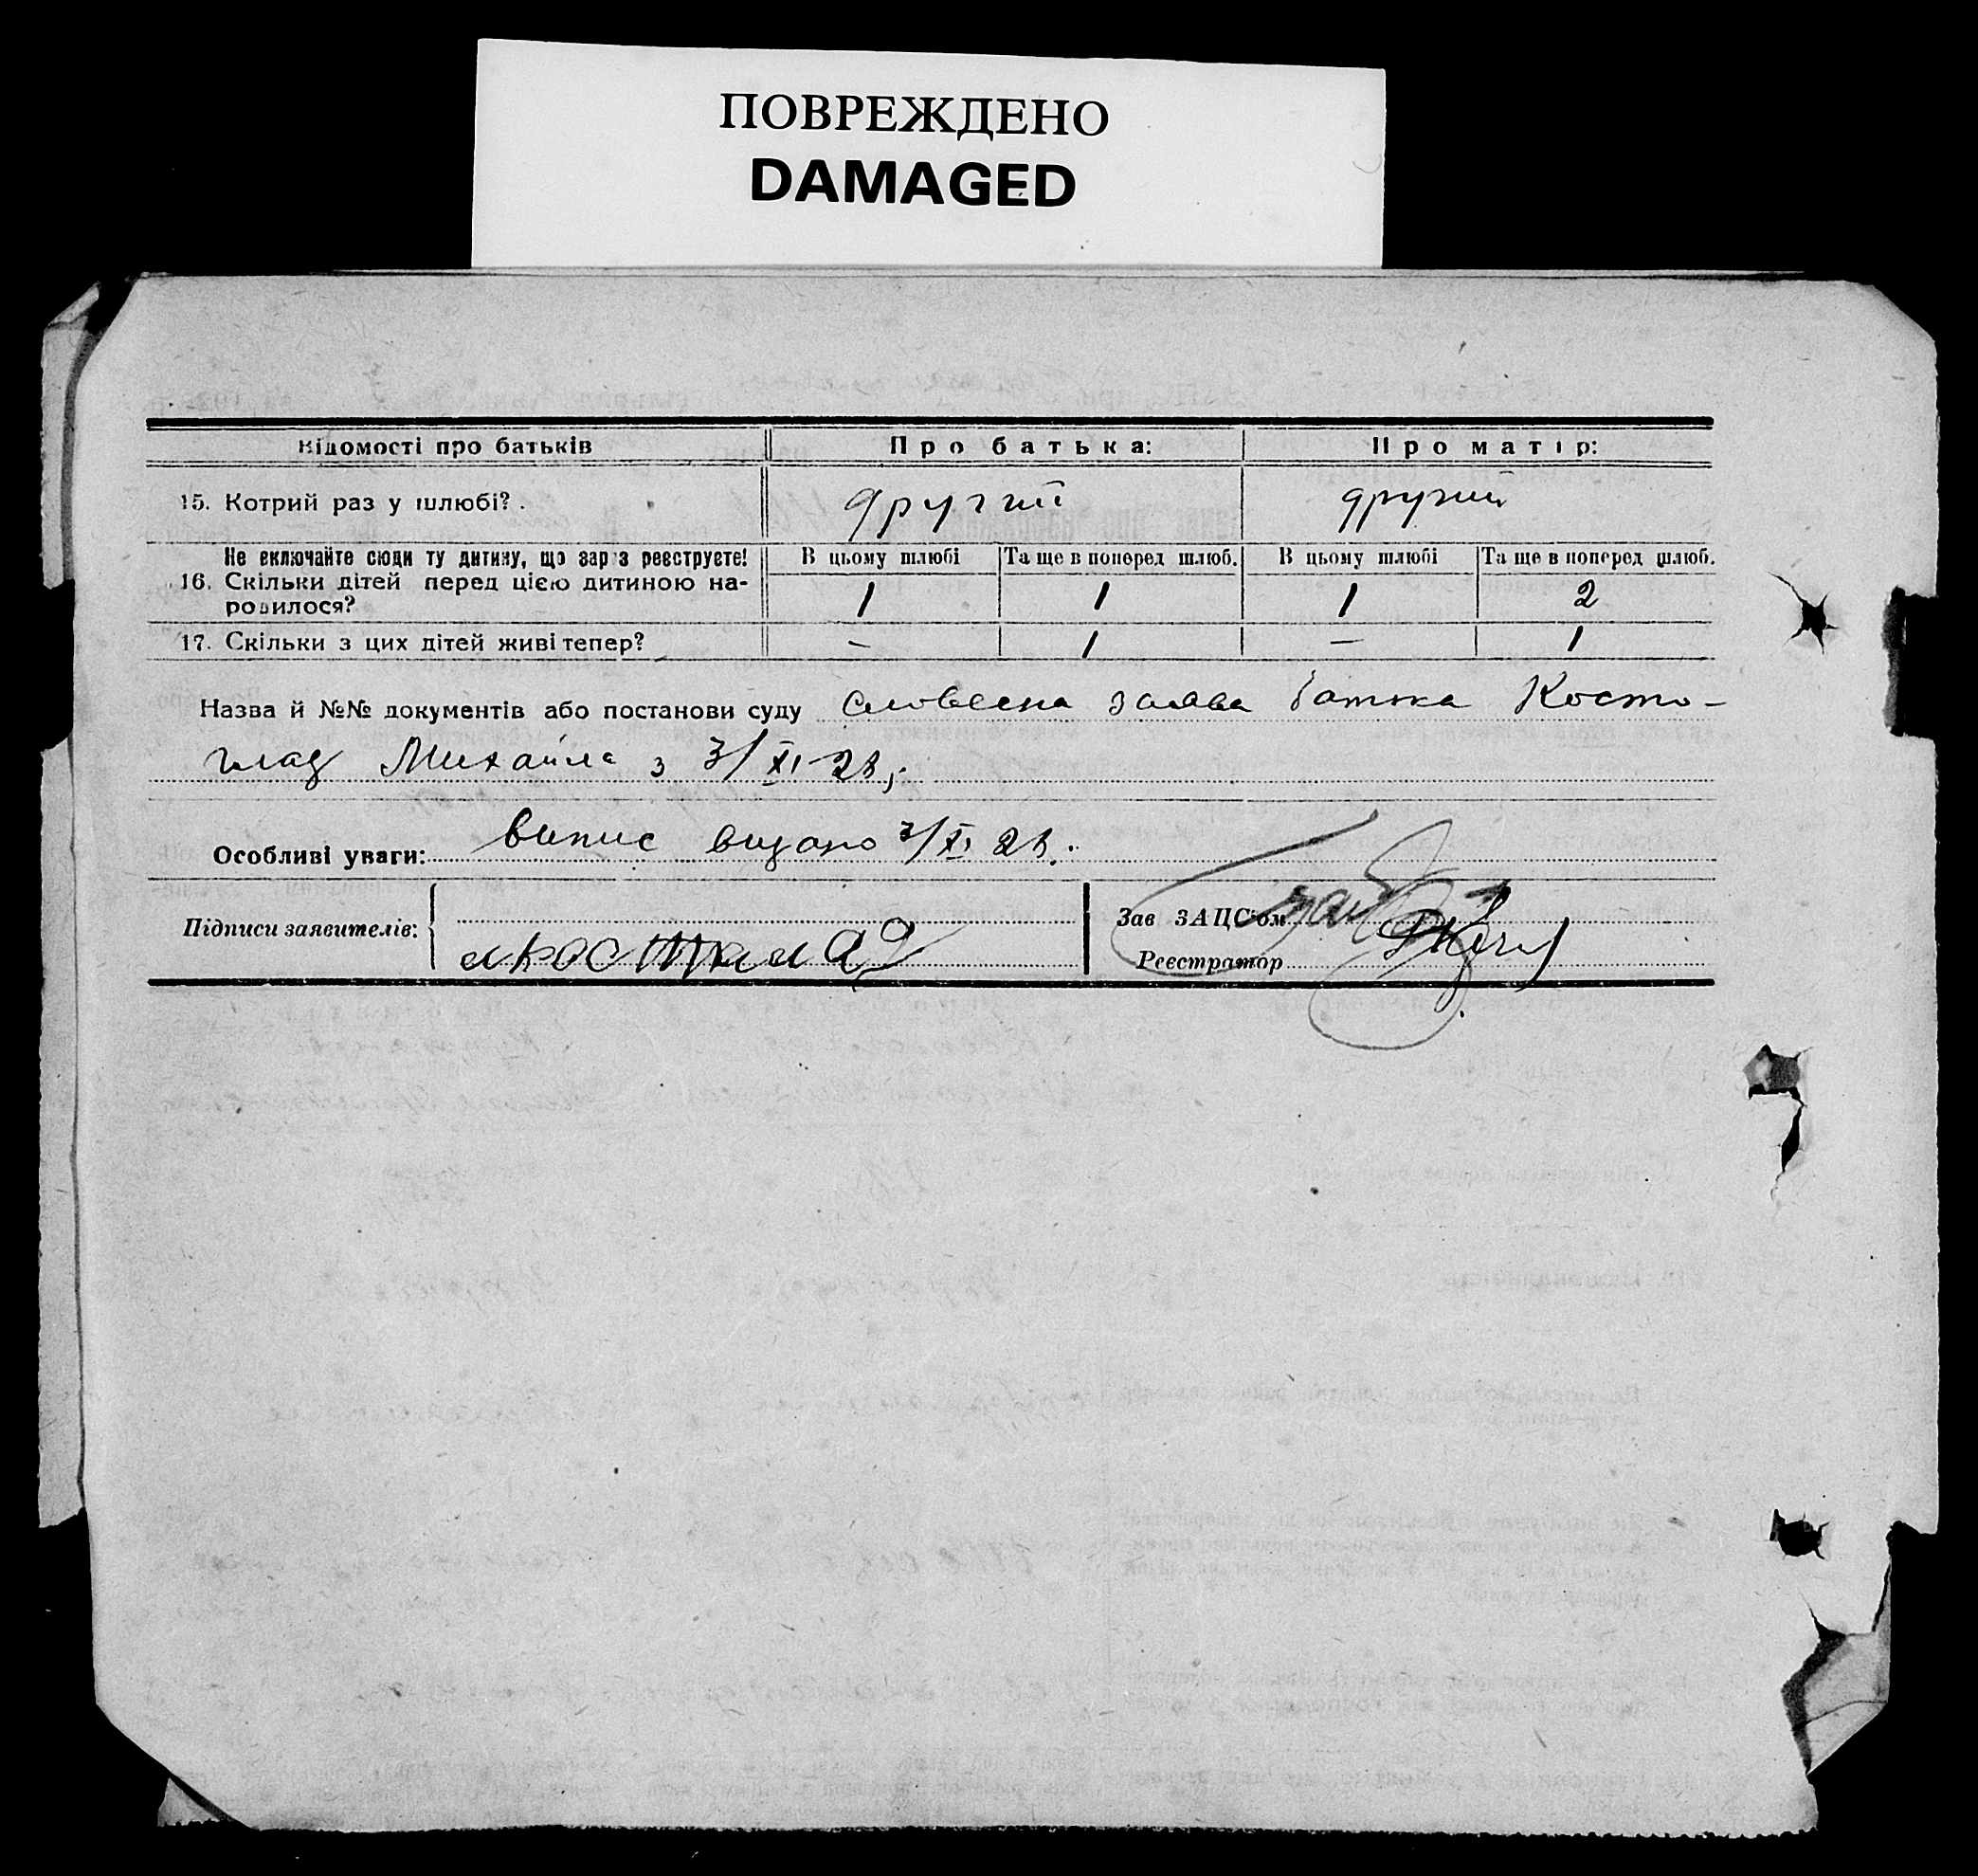 ПОВРЕЖДЕНО
DAMAGED
Відомості про батьків Про батька: Про матір:
15. Котрий раз у шлюбі? другий другий
Не включайте сюди ту дитину, що зараз реєструєте! В цьому шлюбі Та ще в поперед шлюб. В цьому шлюбі Та ще в поперед шлюб.
16. Скільки дітей перед цією дитиною на- 1 1 1 2
родилося?
17. Скільки з цих дітей живі тепер? — 1 — 1
Назва й №№ документів або постанови суду словесна заява батька Косто-
глад Михайла з 3/XI-28,.
Особливі уваги: випис видано 3/XI 28.
Підписи заявителів:
Зав ЗАЦС'ом
Реєстратор